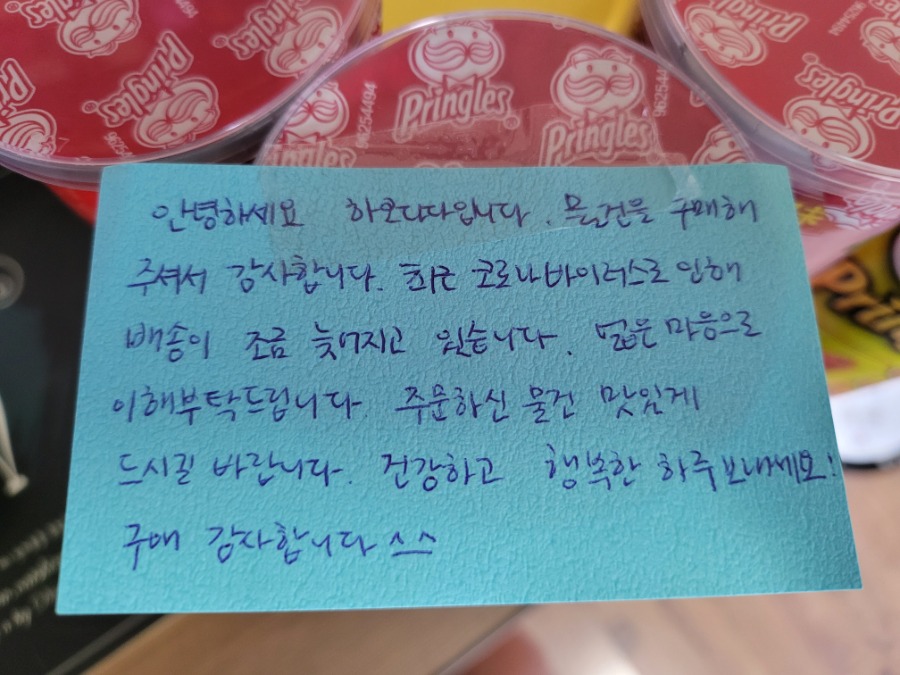 Pringles
Pringles
Pringles
Pringles
96254494
Pringles
Pringles
962544
Pringles
안녕하세요 하오다다입니다. 물건을 구매해
주셔서 감사합니다. 최근 코로나바이러스로 인해
배송이 조금 늦어지고 있습니다. 넓은 마음으로
이해부탁드립니다 주문하신 물건 맛있게
드시길 바랍니다. 건강하고 행복한 하루보내세요!
구매 감사합니다 ^^